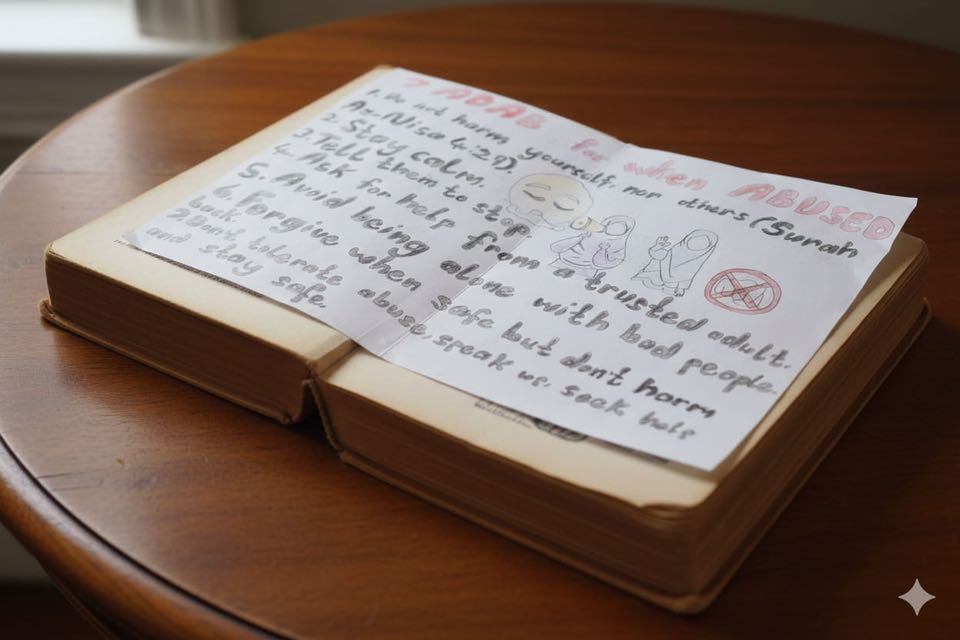 7 ADAB for when ABUSED
1. Do not harm yourself, nor others (Surah
An-Nisa 4:29).
2. Stay calm.
3. Tell them to stop.
4. Ask for help from a trusted adult.
5. Avoid being alone with bad people.
6. Forgive when safe but don't harm
back.
7 Don't tolerate abuse, speak up, seek help
and stay safe.